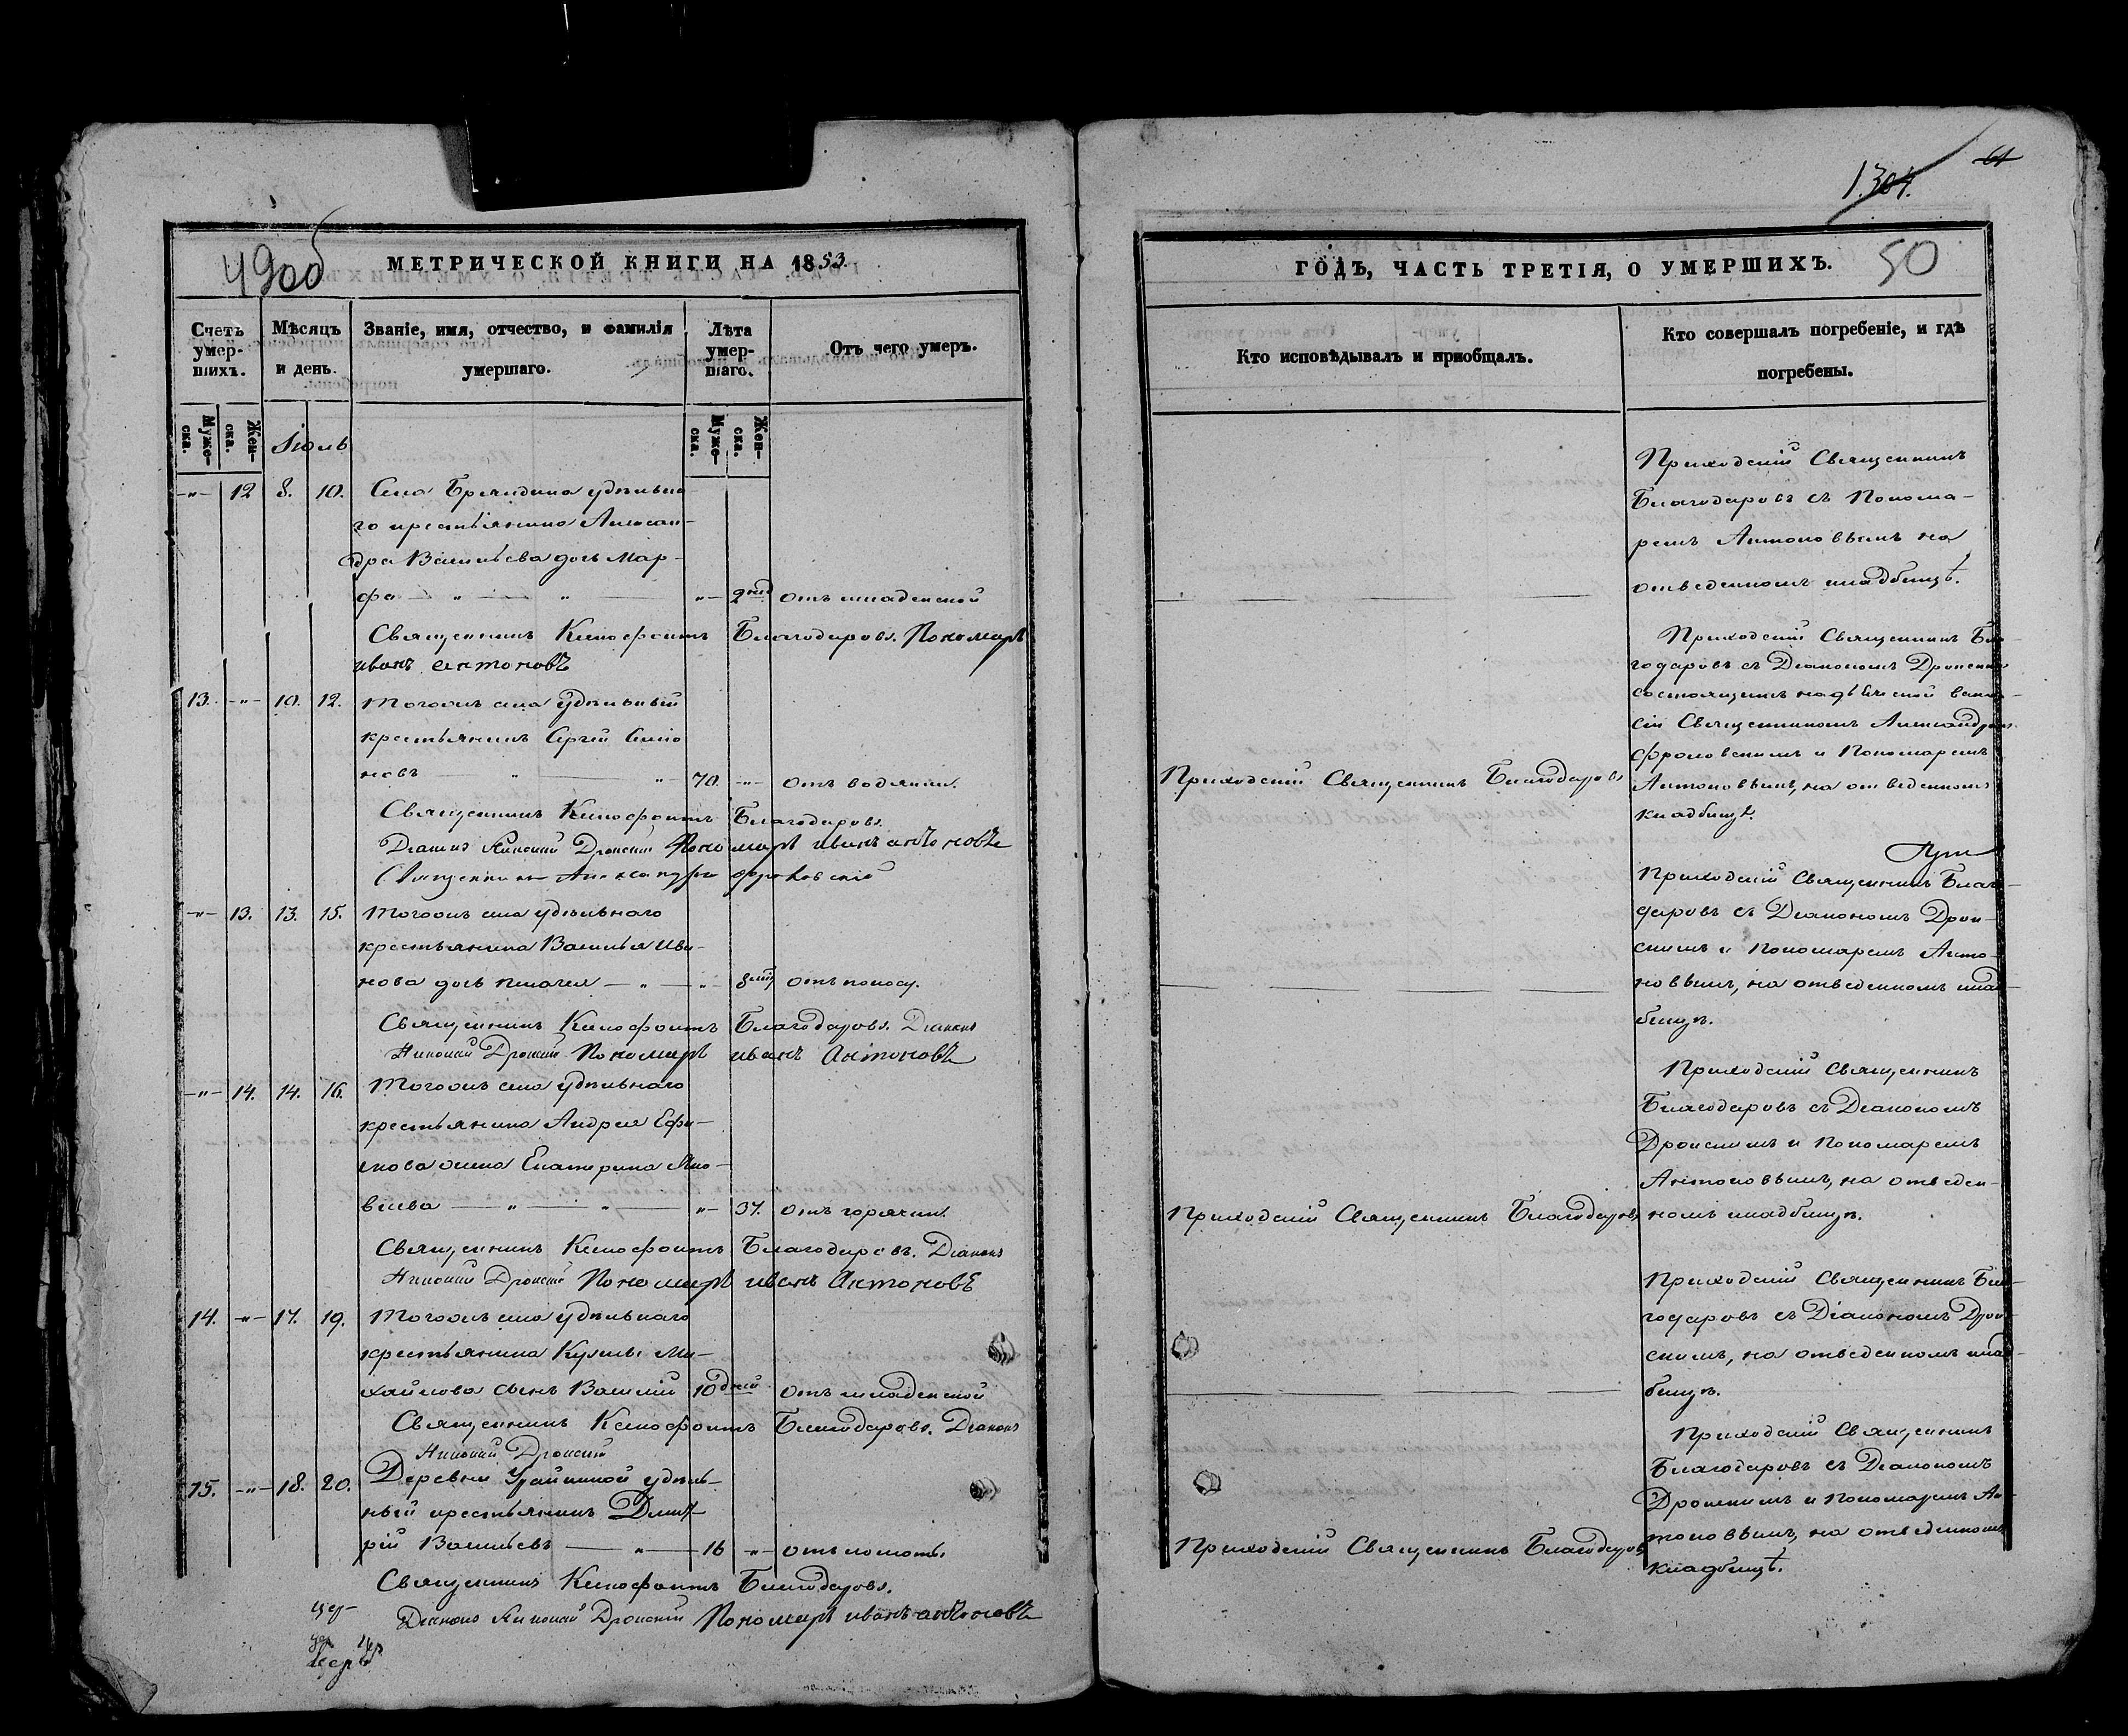 49об
МЕТРИЧЕСКОЙ КНИГИ НА 1853.
Счетъ умер-шихъ.
Мѣсяцъ и день.
Званіе, имя, отчество, и фамилія умершаго.
Лѣта умер-шаго.
Отъ чего умеръ.
Муже-ска.
Жен-ска.
Муже-ска.
Жен-ска.
Іюль
-"- 12 8. 10. Села Бряндина удѣльна-
го крестьянина Алексан-
дра Васильева дочь Мар-
фа — " — " — "- 2 нед отъ младенской
Священникъ Ксенофонтъ Благодаровъ. Пономарь
иванъ антоновъ
13. -"- 10. 12. Тогожъ села удѣльный
крестьянинъ Сергій Симо
новъ — " — " 70. -"- отъ водянки.
Священникъ Ксенофонтъ Благодаровъ.
Діаконъ Николай Дронскій Пономарь иванъ антоновъ
Священникъ Александръ Фроловскій
-"- 13. 13. 15. Тогожъ села удѣльнаго
крестьянина Василья Ива-
нова дочь Пелагея — " — "- 8 мѣ отъ поносу.
Священникъ Ксенофонтъ Благодаровъ. Діаконъ
Николай Дронскій Пономарь иванъ Антоновъ
-"- 14. 14. 16. Тогожъ села удѣльнаго
крестьянина Андрея Ефи-
мова жена Екатерина Яко-
влева — " — " — "- 37. отъ горячки.
Священникъ Ксенофонтъ Благодаровъ. Діаконъ
Николай Дронскій Пономарь иванъ Антоновъ
14. -"- 17. 19. Тогожъ села удѣльнаго
крестьянина Кузьмы Ми-
хайлова сынъ Василій 10 дней отъ младенской
Священникъ Ксенофонтъ Благодаровъ. Діаконъ
Николай Дронскій
15. -"- 18. 20. Деревни Урайкиной удѣль-
ный крестьянинъ Дмит-
рій Васильевъ — " — 16 "- отъ ломоты.
Священникъ Ксенофонтъ Благодаровъ.
Діаконъ Николай Дронскій Пономарь иванъ антоновъ
1304.
61
ГОДЪ, ЧАСТЬ ТРЕТІЯ, О УМЕРШИХЪ.
50
Кто исповѣдывалъ и пріобщалъ.
Кто совершалъ погребеніе, и гдѣ погребены.
Приходскій Священникъ
Благодаровъ съ Понома-
ремъ Антоновымъ на
отведенномъ кладбищѣ.
Приходскій Священникъ Бла-
годаровъ съ Діакономъ Дронскимъ
сіи Священникомъ Александромъ
Фроловскимъ и Пономаремъ
Приходскій Священникъ Благодаровъ
Антоновымъ, на отведенномъ
кладбищѣ.
Приходскій Священникъ Благо-
даровъ съ Діакономъ Дрон-
скимъ и Пономаремъ Анто-
новымъ, на отведенномъ клад-
бищѣ.
Приходскій Священникъ
Благодаровъ съ Діакономъ
Дронскимъ и Пономаремъ
Антоновымъ, на отведен-
Приходскій Священникъ Благодаровъ
номъ кладбищѣ.
Приходскій Священникъ Бла-
годаровъ съ Діакономъ Дрон-
скимъ, на отведенномъ клад-
бищѣ.
Приходскій Священникъ
Благодаровъ съ Діакономъ
Дронскимъ и Пономаремъ Ан-
тоновымъ, на отведенномъ
Приходскій Священникъ Благодаровъ
кладбищѣ.